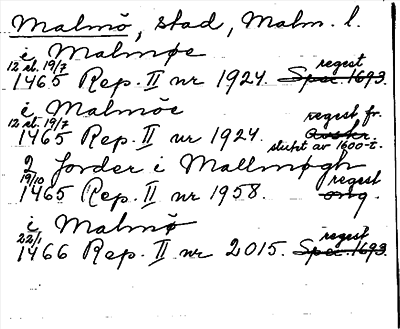 Malmö, stad, Malm. l.
i Malmøe
12 st. 19/7 regest
1465 Rep. II nr 1924. Spec. 1693.
i Malmöe
12 st. 19/7 regest fr.
1465 Rep. II nr 1924. Avskr.
slutet av 1600-t.
2 jorder i Mallmøgh
19/10 regest
1465 Rep. II nr 1958. orig.
i Malmø
22/1 regest
1466 Rep. II nr 2015. Spec. 1693.